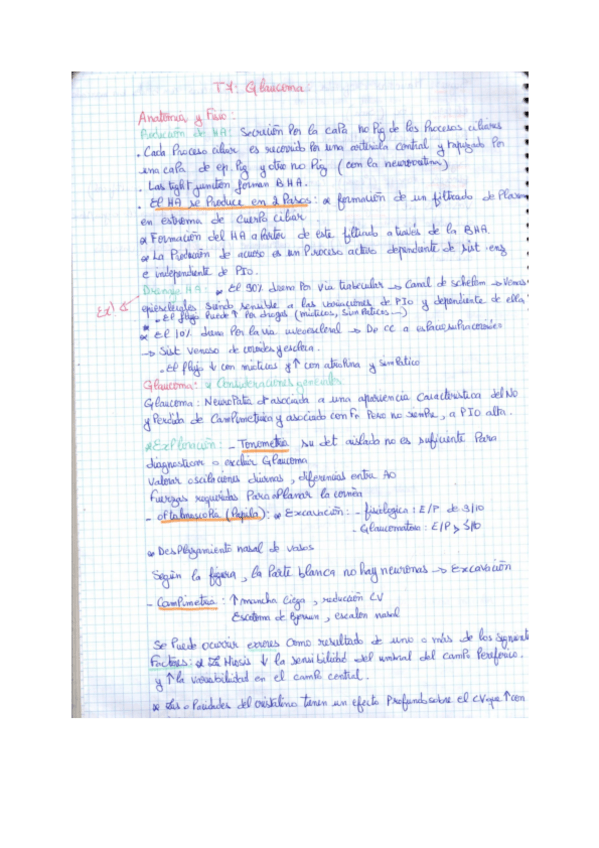 T7: Glaucoma
Anatomía y Fisio:
Producción de HA: Secreción por la capa no Pig de los Procesos ciliares
. Cada Proceso ciliar es recorrido por una arteriola central y tapizado por
una capa de ep. Pig y otro no Pig (con la neurorretina)
. Las tight junction forman BHA.
. El HA se Produce en 2 Pasos: * formación de un filtrado de Plasma
en estroma de cuerpo ciliar
* Formación del HA a Partir de este filtrado a través de la BHA.
* La Producción de acuoso es un Proceso activo dependante de sist enz
e independiente de PIO.
Drenaje HA: * El 90% drena por vía trabecular → Canal de schelem → Venas
Ex!
epiesclerales siendo sensible a las variaciones de PIO y dependiente de ella
* El flujo Puede ↑ por drogas (mióticos, Simpáticos ...)
* El 10% drena Por la via uveoescleral → De CC a espacio supracoroideo
→ Sist venoso de coroides y esclera.
. El flujo ↓ con mioticos y ↑ con atropina y simpático
Glaucoma: * Consideraciones generales
Glaucoma: NeuroPatía asociada a una apariencia Característica del NO
y Perdida de Campimetría y asociado con Fr Pero no siempre, a PIO alta.
* Exploración: - Tonometría su det aislado no es suficiente Para
diagnosticar o excluir Glaucoma
Valorar oscilaciones diurnas, diferencias entre AO
Fuerzas requeridas Para aplanar la cornea
- oftalmoscopia (Papila): * Excavación: - fisiológica: E/P de 3/10
- Glaucomatosa: E/P > 3/10
* Desplazamiento nasal de vasos
Según la figura, la Parte blanca no hay neuronas → Excavación
- Campimetria: ↑ mancha ciega, reducción CV
Escotoma de Bjerrum, escalón nasal
Se Puede ocurrir errores como resultado de uno o más de los siguient
Factores: * Miosis ↓ la sensibilidad del umbral del campo Periférico.
y ↑ la variabilidad en el campo central.
* Las opacidades del cristalino tienen un efecto Profundo sobre el CV que ↑ con